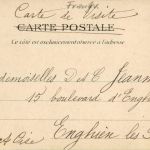 France
Carte de Visite
CARTE POSTALE
Ce côté est exclusivement réservé à l'adresse
demoiselles D et C Jeann
15 boulevard d'Engh
Enghien les